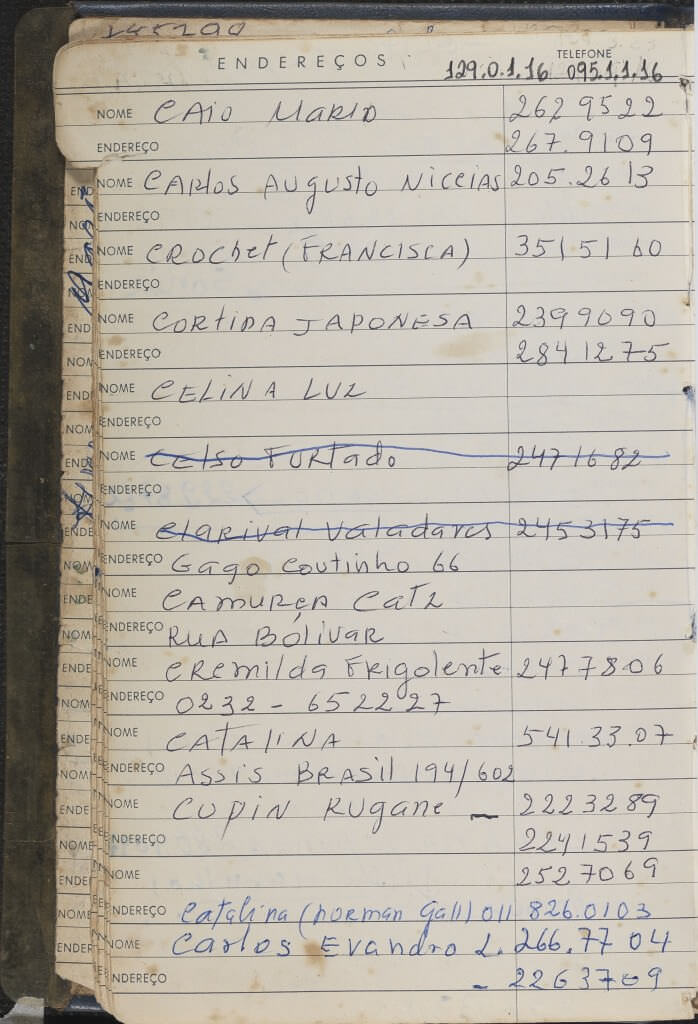 145290
ENDEREÇOS TELEFONE
129.0.1.16 095.1.1.16
NOME CAIO MARIO 262 9522
ENDEREÇO 267.9109
NOME CARLOS AUGUSTO NICEIAS 205.26 13
ENDEREÇO
NOME CROCHET (FRANCISCA) 351 51 60
ENDEREÇO
NOME CORTINA JAPONESA 2399090
ENDEREÇO 2841275
NOME CELINA LUZ
ENDEREÇO
NOME CELSO FURTADO 2471682
ENDEREÇO
NOME Clarival Valadares 2453175
ENDEREÇO Gago Coutinho 66
NOME CAMURÇA Catz
ENDEREÇO RUA BÓLIVAR
NOME CREMILDA FRIGOLENTE 2477806
ENDEREÇO 0232 - 652227
NOME CATALINA 541.33.07
ENDEREÇO ASSIS BRASIL 194/602
NOME CUPIN RUGANE - 2223289
ENDEREÇO 2241539
NOME 2527069
ENDEREÇO Catalina (Norman Gall) 011 826.0103
NOME Carlos Evandro L. 266.77 04
ENDEREÇO - 2263709